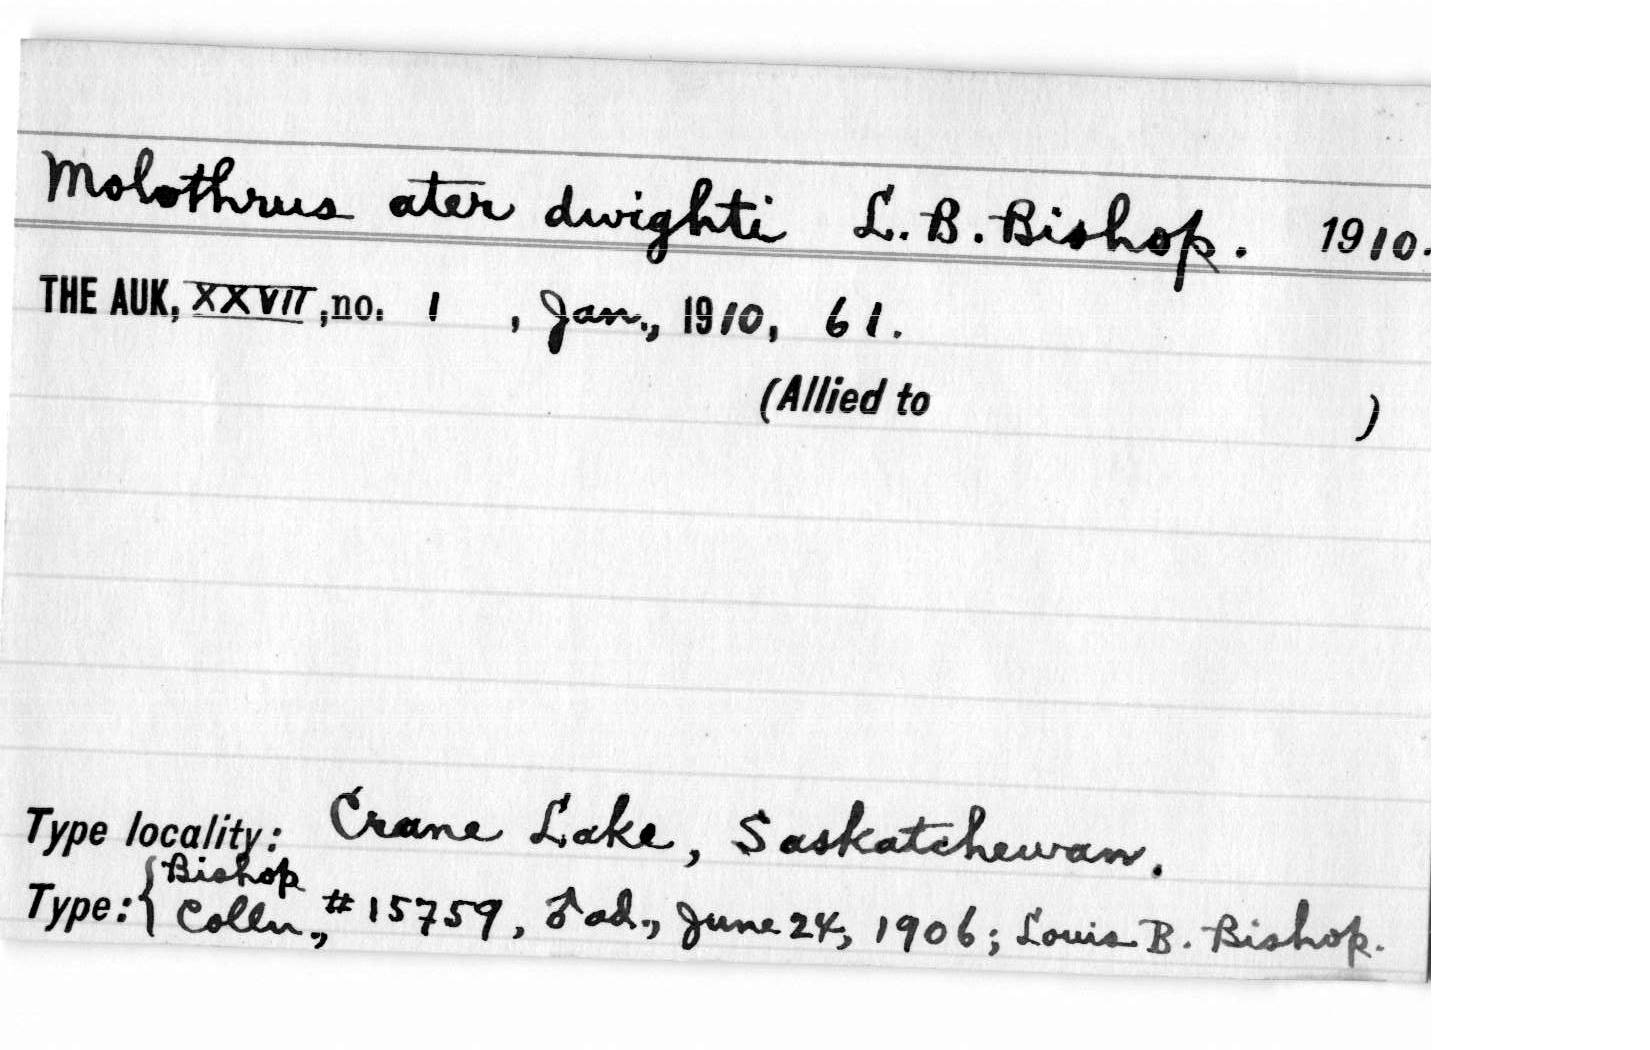 Molothrus ater dwighti L. B. Bishop. 1910.
THE AUK, XXVII, no. 1, Jan., 1910, 61.
(Allied to )
Type locality: Crane Lake, Saskatchewan.
Type: { Bishop
Colln., #15759, ♂ ad., June 24, 1906; Louis B. Bishop.